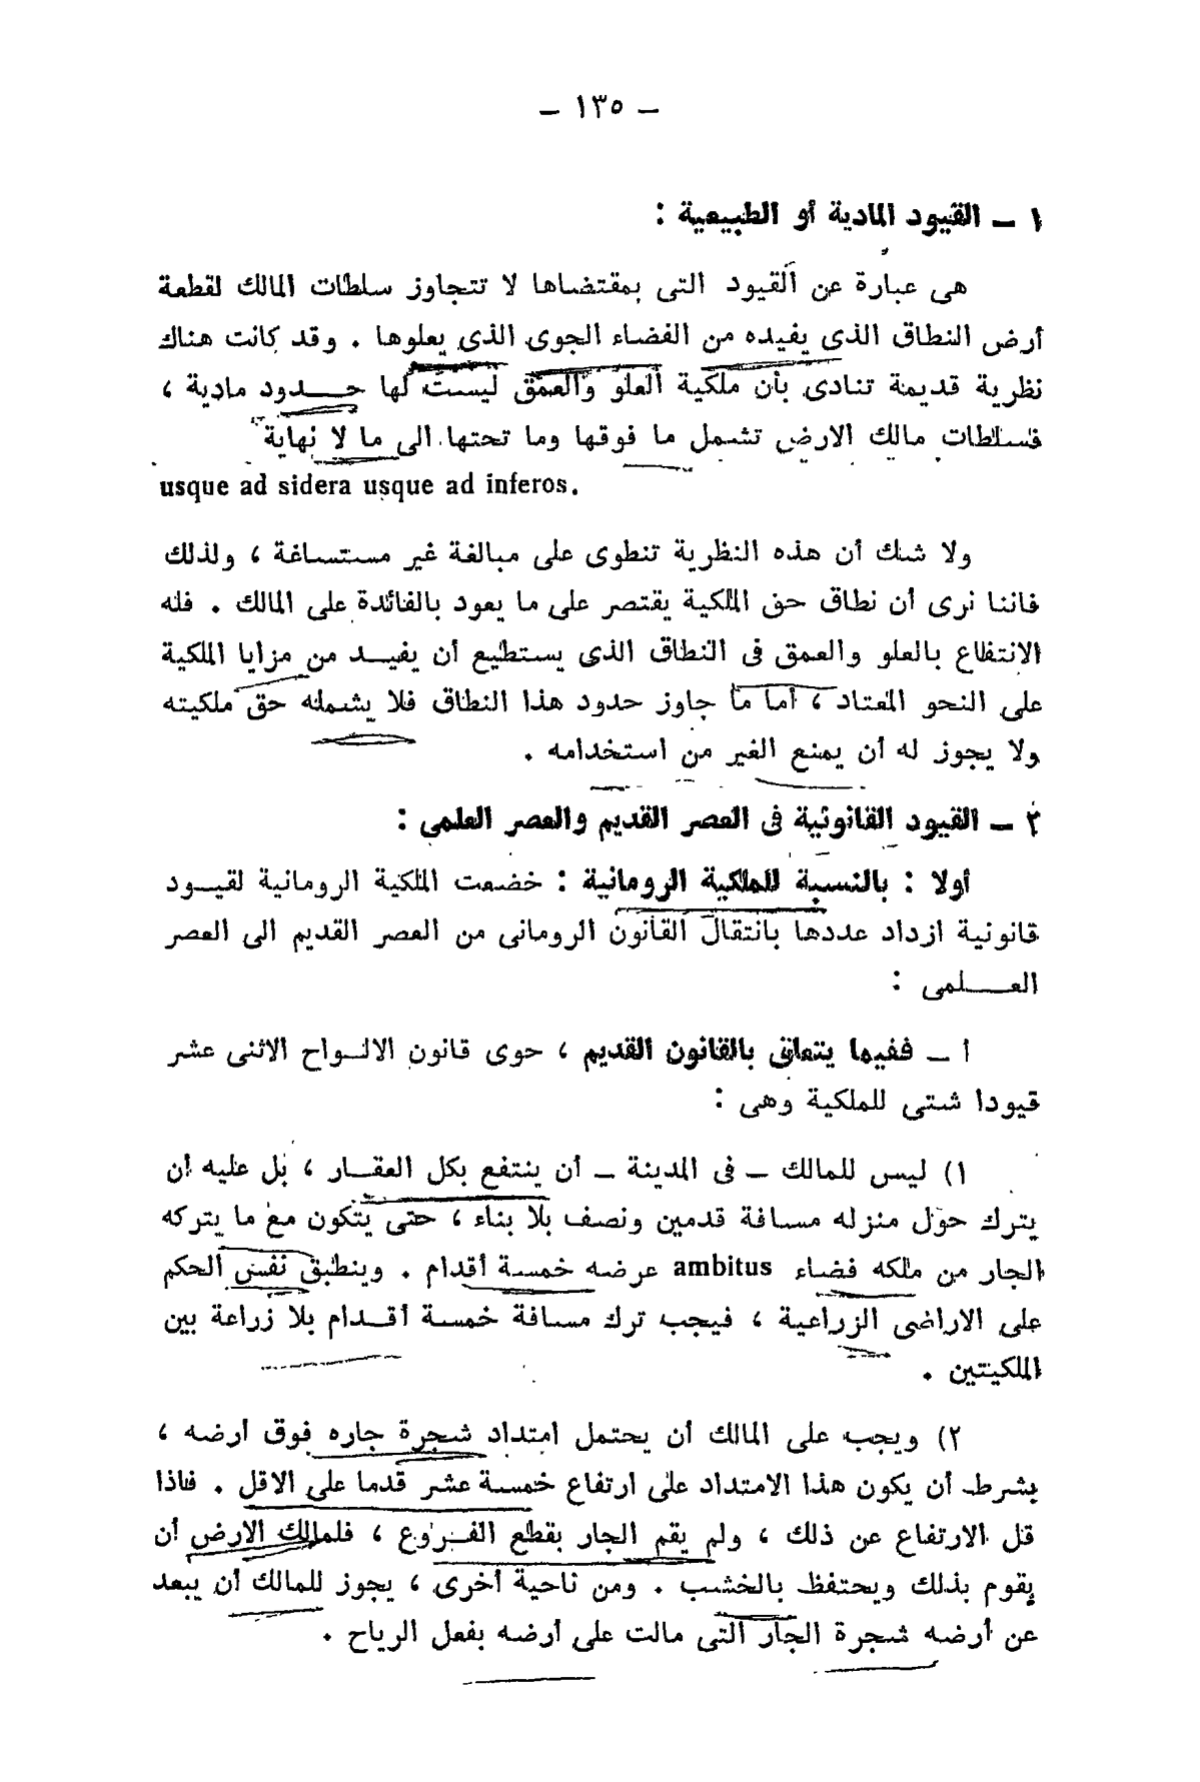 — ١٣٥ —
١ — القيود المادية أو الطبيعية :
هى عبارة عن القيود التى بمقتضاها لا تتجاوز سلطات المالك لقطعة
أرض النطاق الذى يفيده من الفضاء الجوى الذى يعلوها . وقد كانت هناك
نظرية قديمة تنادى بأن ملكية العلو والعمق ليست لها حـــدود مادية ،
فسلطات مالك الارض تشمل ما فوقها وما تحتها الى ما لا نهاية
usque ad sidera usque ad inferos.
ولا شك أن هذه النظرية تنطوى على مبالغة غير مستساغة ، ولذلك
فاننا نرى أن نطاق حق الملكية يقتصر على ما يعود بالفائدة على المالك . فله
الانتفاع بالعلو والعمق فى النطاق الذى يستطيع أن يفيــد من مزايا الملكية
على النحو المعتاد ، أما ما جاوز حدود هذا النطاق فلا يشمله حق ملكيته
ولا يجوز له أن يمنع الغير من استخدامه .
٢ — القيود القانونية فى العصر القديم والعصر العلمى :
أولا : بالنسبة للملكية الرومانية : خضعت الملكية الرومانية لقيــود
قانونية ازداد عددها بانتقال القانون الرومانى من العصر القديم الى العصر
العــــلمى :
أ — ففيما يتعلق بالقانون القديم ، حوى قانون الالــواح الاثنى عشر
قيودا شتى للملكية وهى :
١) ليس للمالك — فى المدينة — أن ينتفع بكل العقــار ، بل عليه أن
يترك حول منزله مسافة قدمين ونصف بلا بناء ، حتى يتكون مع ما يتركه
الجار من ملكه فضاء ambitus عرضه خمسة أقدام . وينطبق نفس الحكم
على الاراضى الزراعية ، فيجب ترك مسافة خمسة أقــدام بلا زراعة بين
الملكيتين .
٢) ويجب على المالك أن يحتمل امتداد شجرة جاره فوق أرضه ،
بشرط أن يكون هذا الامتداد على ارتفاع خمسة عشر قدما على الاقل . فاذا
قل الارتفاع عن ذلك ، ولم يقم الجار بقطع الفــروع ، فلمالك الارض أن
يقوم بذلك ويحتفظ بالخشب . ومن ناحية أخرى ، يجوز للمالك أن يبعد
عن أرضه شجرة الجار التى مالت على أرضه بفعل الرياح .